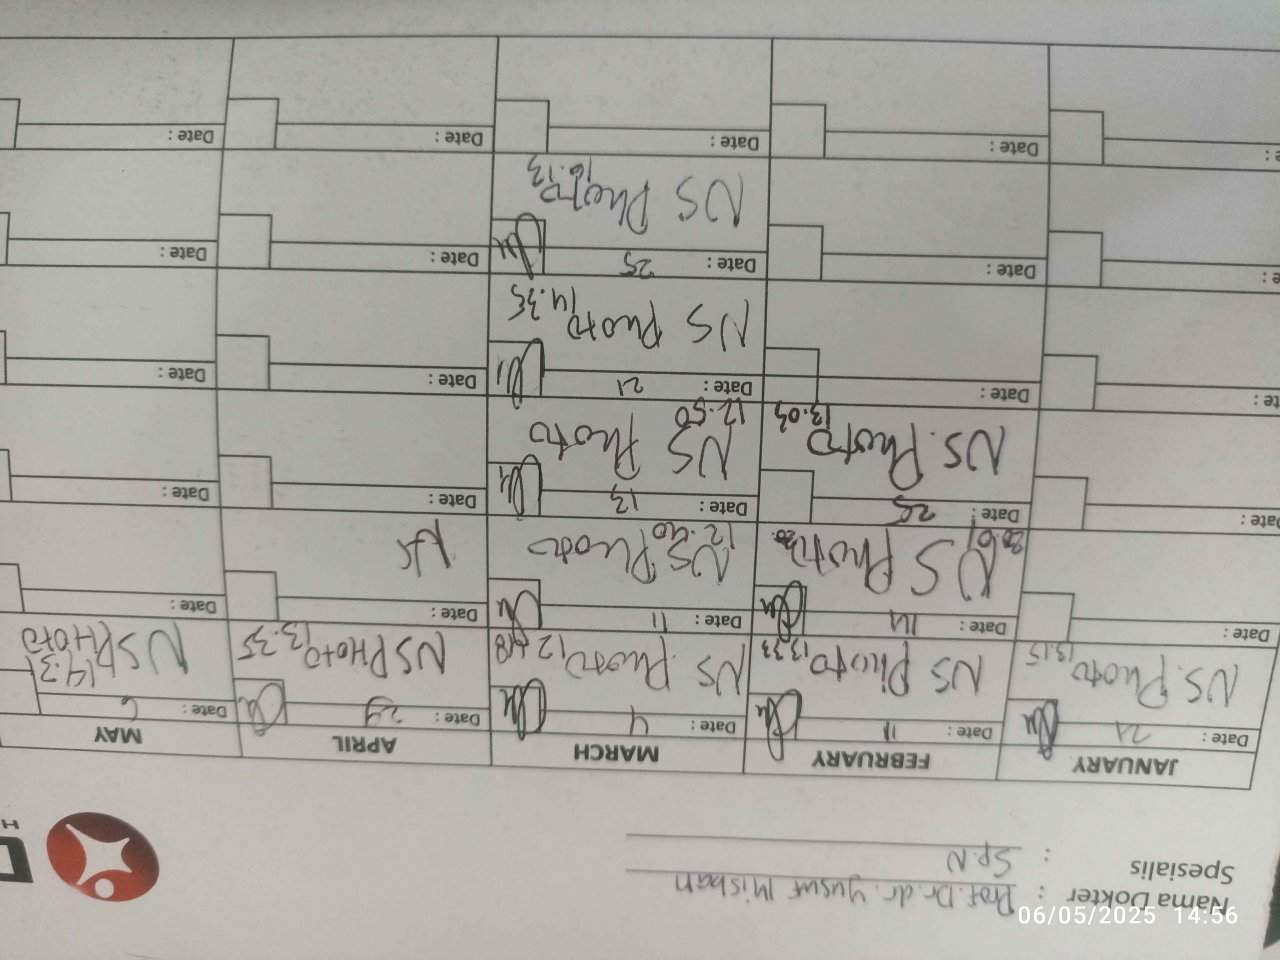 06/05/2025 14:56
Nama Dokter : Prof. Dr. dr. Yusuf Misbah
Spesialis : Sp.N
JANUARY FEBRUARY MARCH APRIL MAY
Date : 21 Date : 11 Date : 4 Date : 29 Date : 6
NS. Photo 13.15 NS Photo 13.33 NS. Photo 12.48 NS PHOTO 13.35 NS PHOTO
Date : Date : 14 Date : 11 Date : Date :
NS Photo NS. Photo 12.40 NS
Date : Date : 25 Date : 13 Date : Date :
NS. Photo 13.03 NS Photo 12.50
Date : Date : Date : 21 Date : Date :
NS Photo 14.35
Date : Date : Date : 25 Date : Date :
NS Photo 16.13
Date : Date : Date : Date : Date :